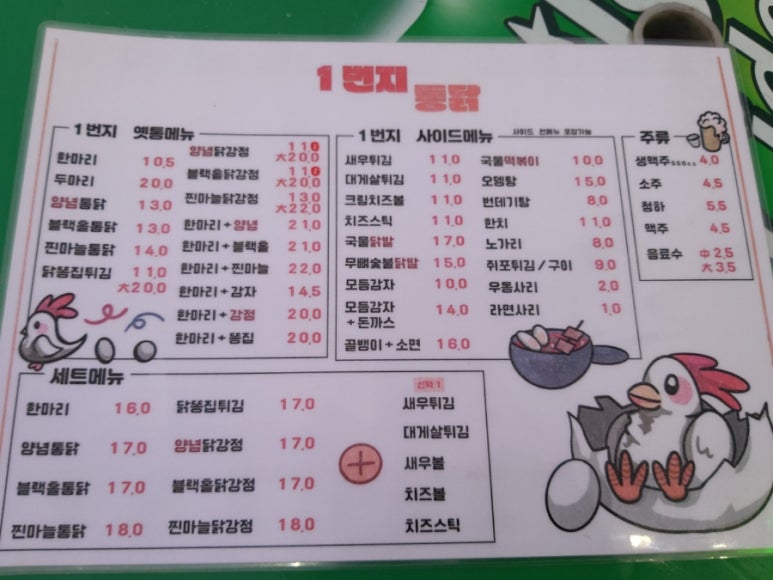 1번지 통닭
1번지 옛통메뉴
한마리 10,5
두마리 20,0
양념통닭 13,0
블랙홀통닭 13,0
찐마늘통닭 14,0
닭똥집튀김 11,0
大20,0
양념닭강정 11,0
大20,0
블랙홀닭강정 11,0
大20,0
찐마늘닭강정 13,0
大22,0
한마리+양념 21,0
한마리+블랙홀 21,0
한마리+찐마늘 22,0
한마리+감자 14,5
한마리+강정 20,0
한마리+똥집 20,0
1번지 사이드메뉴 사이드 전메뉴 포장가능
새우튀김 11,0
대게살튀김 11,0
크림치즈볼 11,0
치즈스틱 11,0
국물닭발 17,0
무뼈숯불닭발 15,0
모듬감자 10,0
모듬감자
+돈까스 14,0
골뱅이+소면 16,0
국물떡볶이 10,0
오뎅탕 15,0
번데기탕 8,0
한치 11,0
노가리 8,0
쥐포튀김/구이 9,0
우동사리 2,0
라면사리 1,0
주류
생맥주500cc 4,0
소주 4,5
청하 5,5
맥주 4,5
음료수 中2,5
大3,5
세트메뉴
한마리 16,0
양념통닭 17,0
블랙홀통닭 17,0
찐마늘통닭 18,0
닭똥집튀김 17,0
양념닭강정 17,0
블랙홀닭강정 17,0
찐마늘닭강정 18,0
+
선택1
새우튀김
대게살튀김
새우볼
치즈볼
치즈스틱